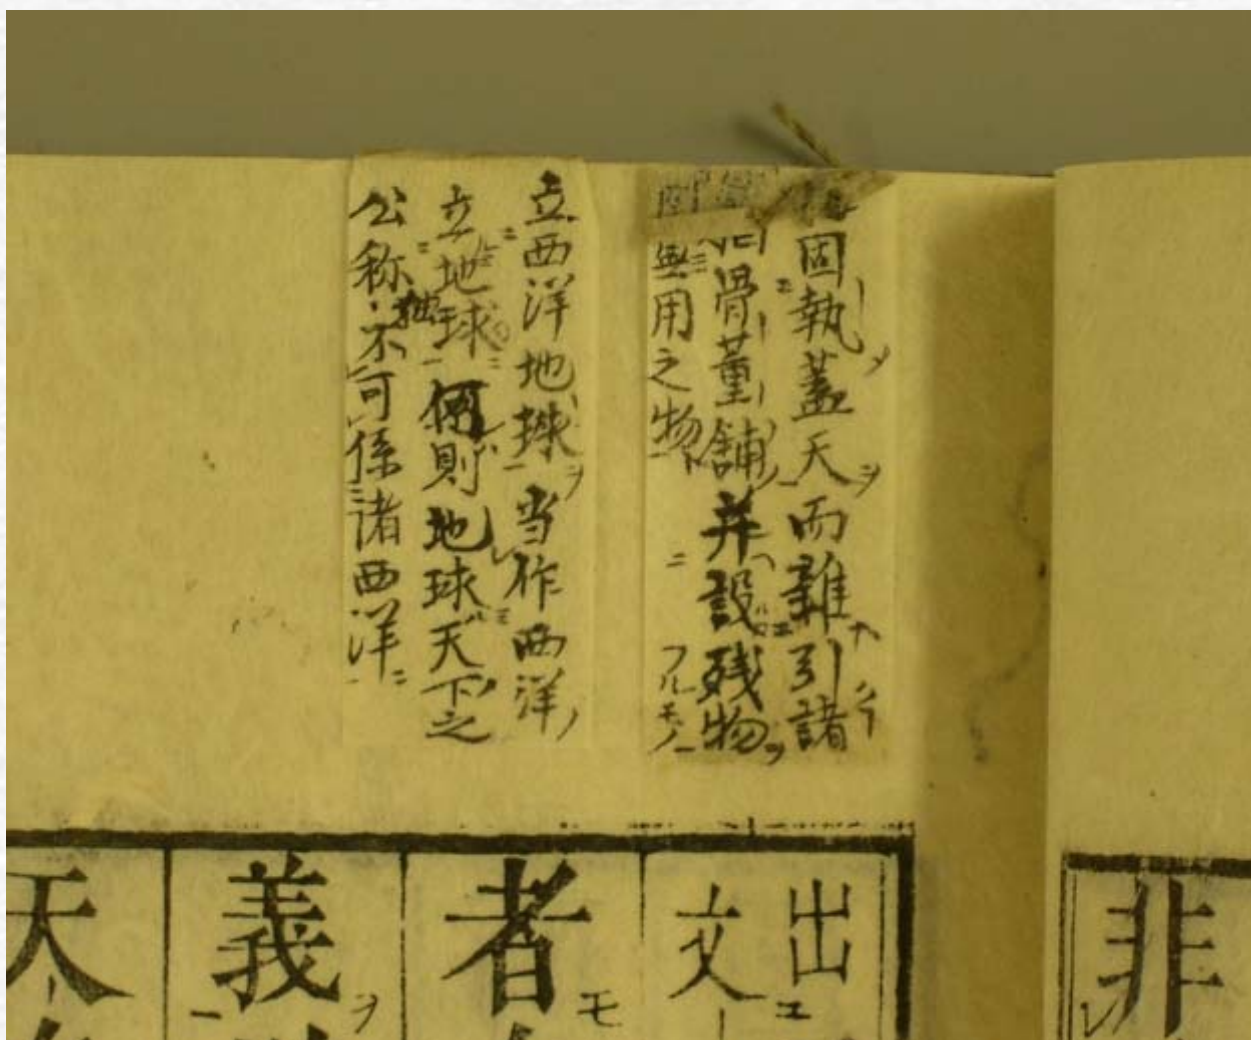 非
固執蓋天而雜引諸
骨董舗并設残物
無用之物
フルモノ
立西洋地球当作西洋
立地球何則地球天下之
公称独不可係諸西洋
出
文
者
義
天